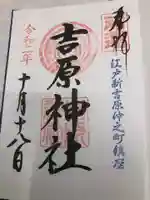 奉拝
江戸新吉原仲之町鎮座
吉原神社
令和二年
十月十八日